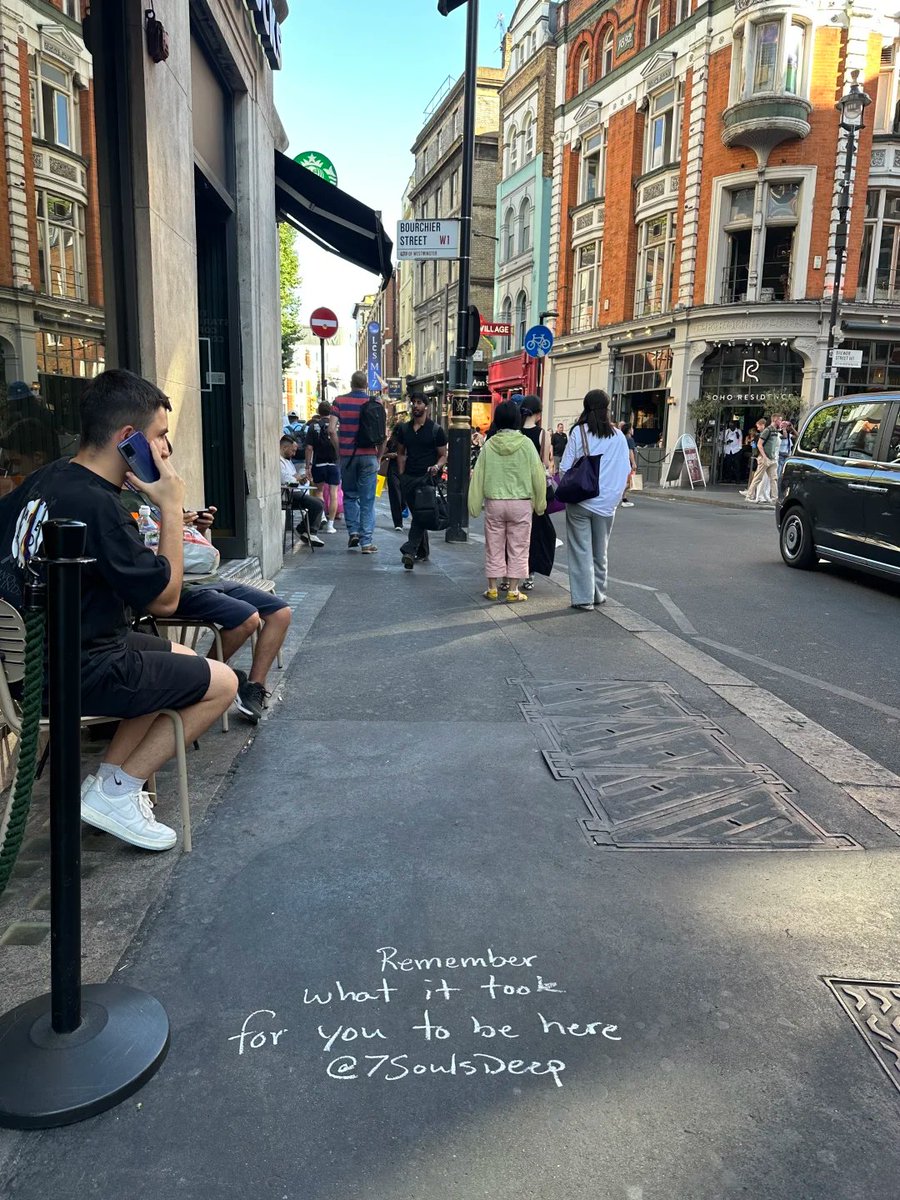 BOURCHIER
STREET W1
CITY OF WESTMINSTER
VILLAGE
R
SOHO RESIDENCE
Remember
what it took
for you to be here
@7SoulsDeep